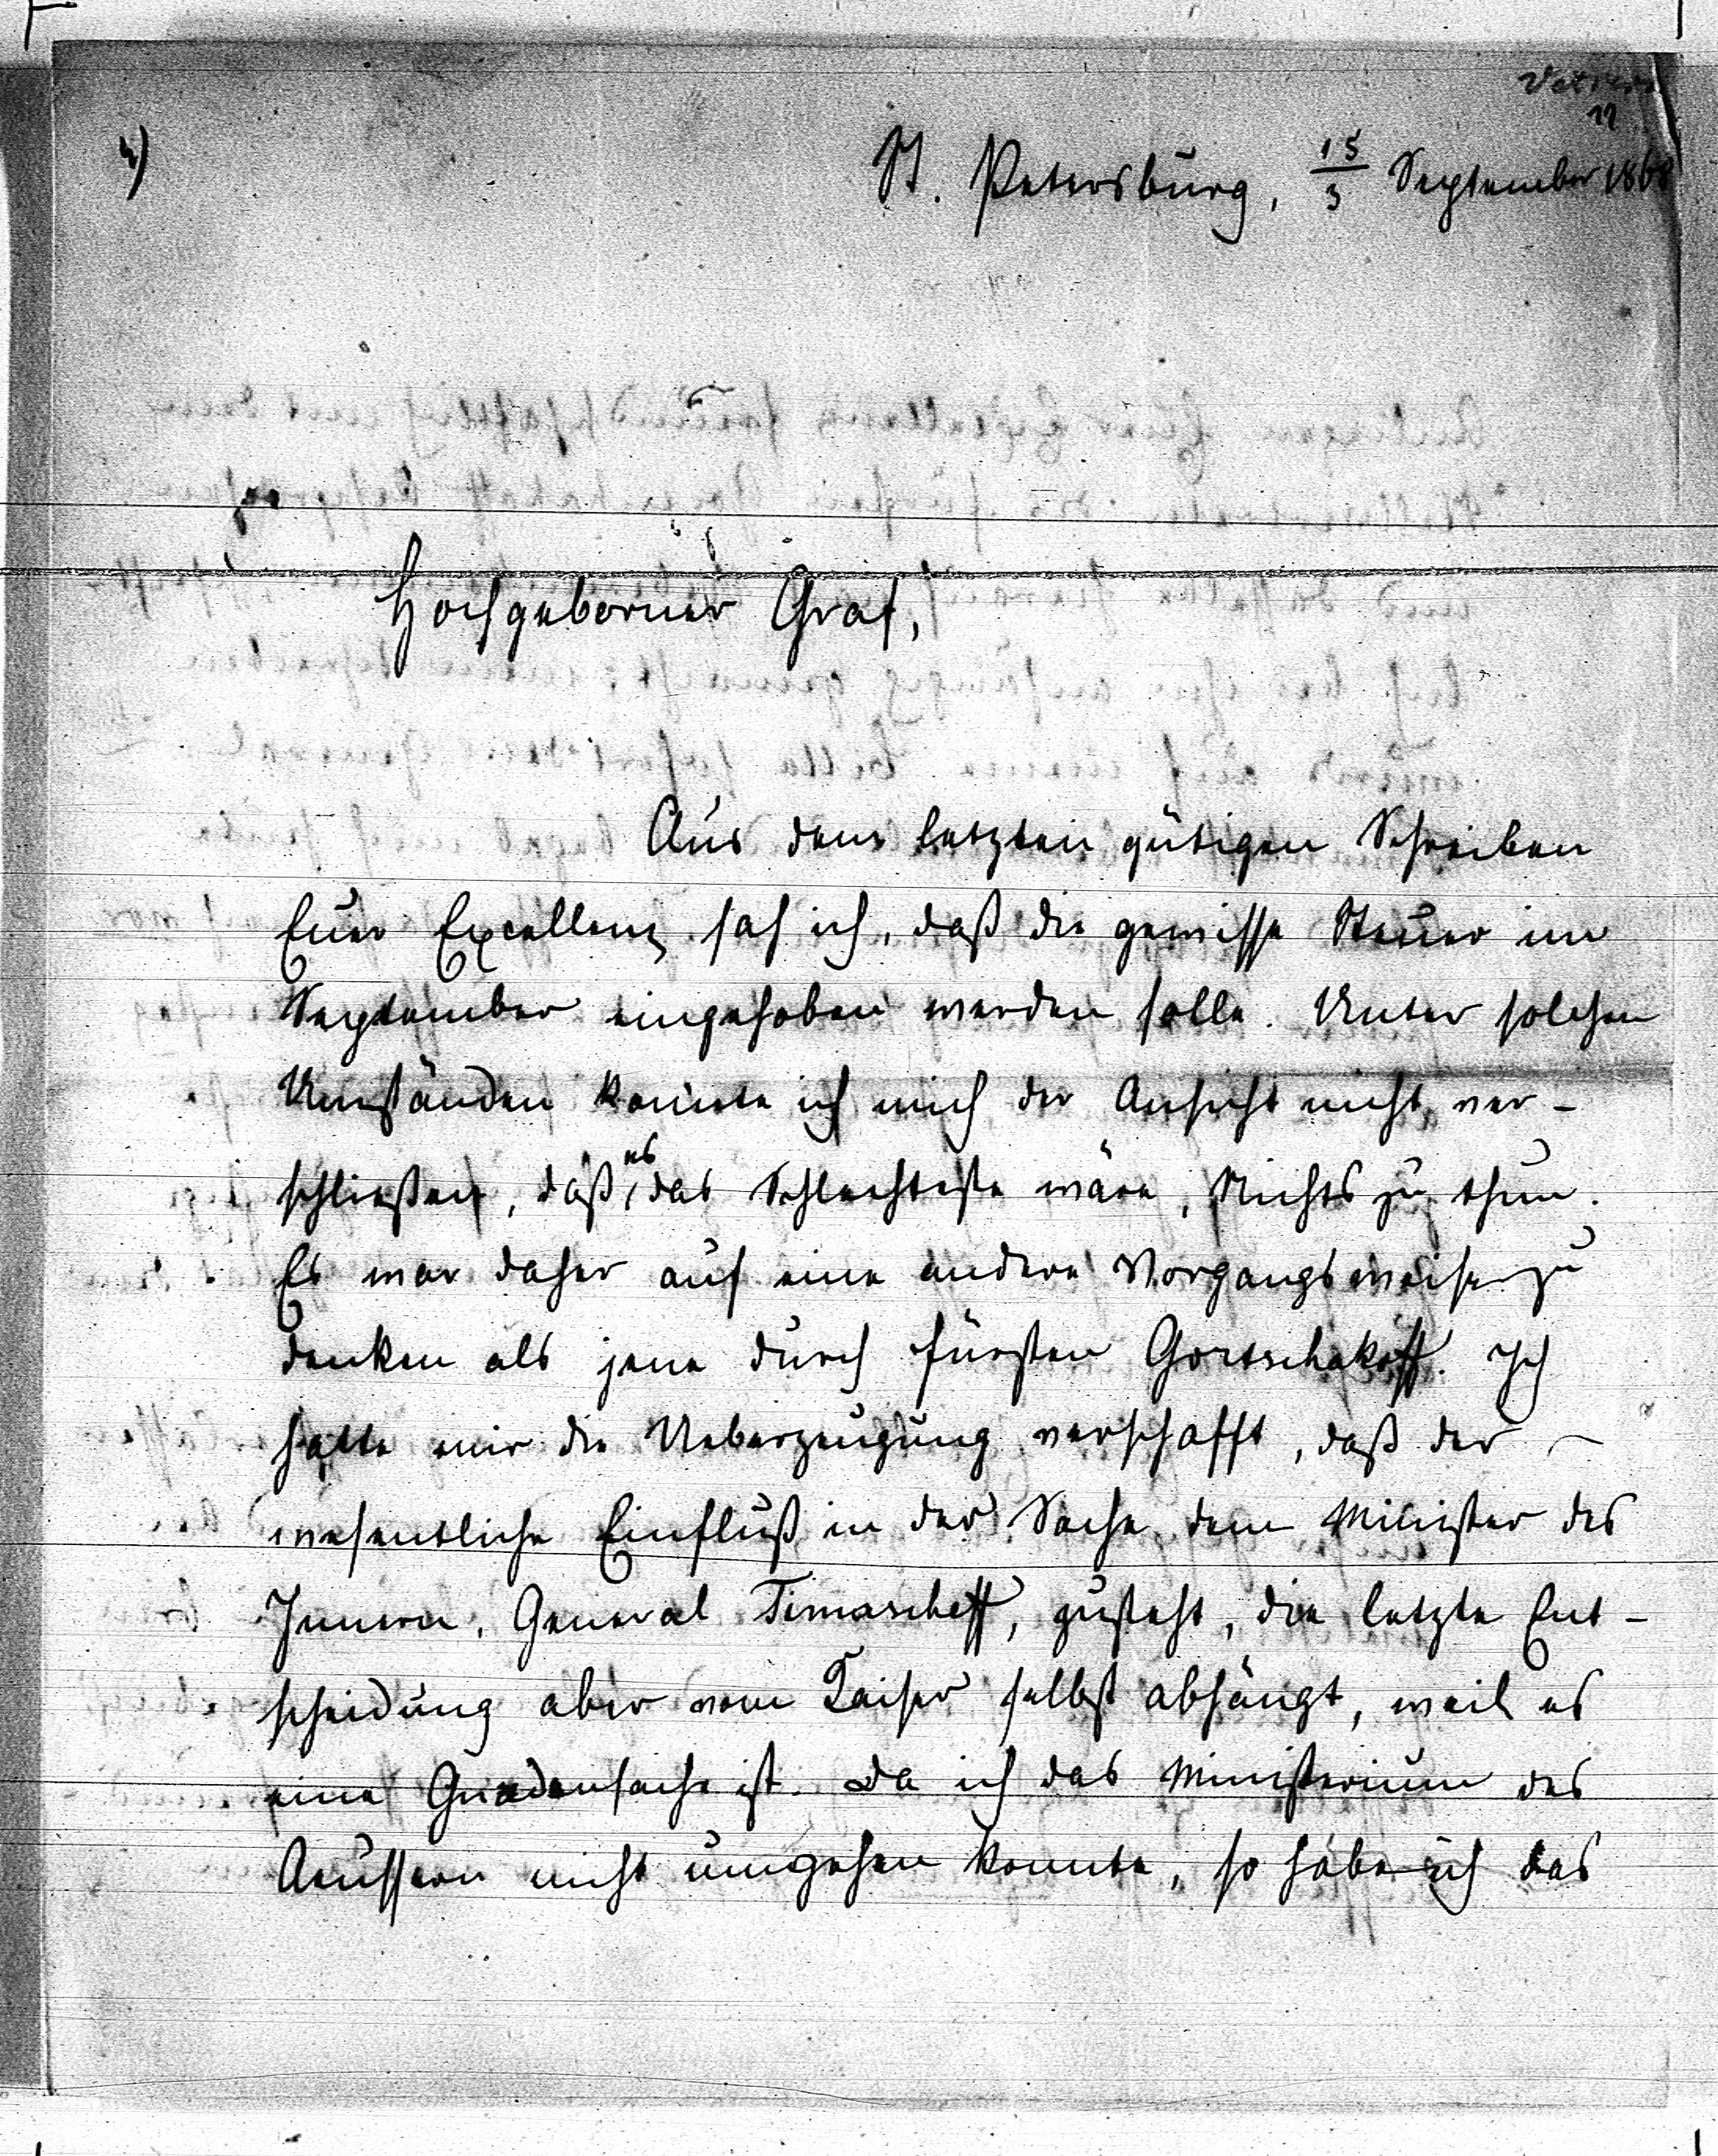 4)
St. Petersburg, 15/3 September 1868
Hochgeborner Graf,
Aus dem letzten gütigen Schreiben
Euer Excellenz sah ich, daß die gewisse Steuer im
September eingehoben werden solle. Unter solchen
Umständen konnte ich mich der Ansicht nicht ver-
schließen, daß es das Schlechteste wäre, Nichts zu thun.
Es war daher auf eine andere Vorgangsweise zu
denken als jene durch Fürsten Gortschakoff. Ich
hatte mir die Ueberzeugung verschafft, daß der
wesentliche Einfluß in der Sache dem Minister des
Innern, General Timascheff, zusteht, die letzte Ent-
scheidung aber vom Kaiser selbst abhängt, weil es
eine Gnadensache ist. Da ich das Ministerium des
Aeussern nicht umgehen konnte, so habe ich das